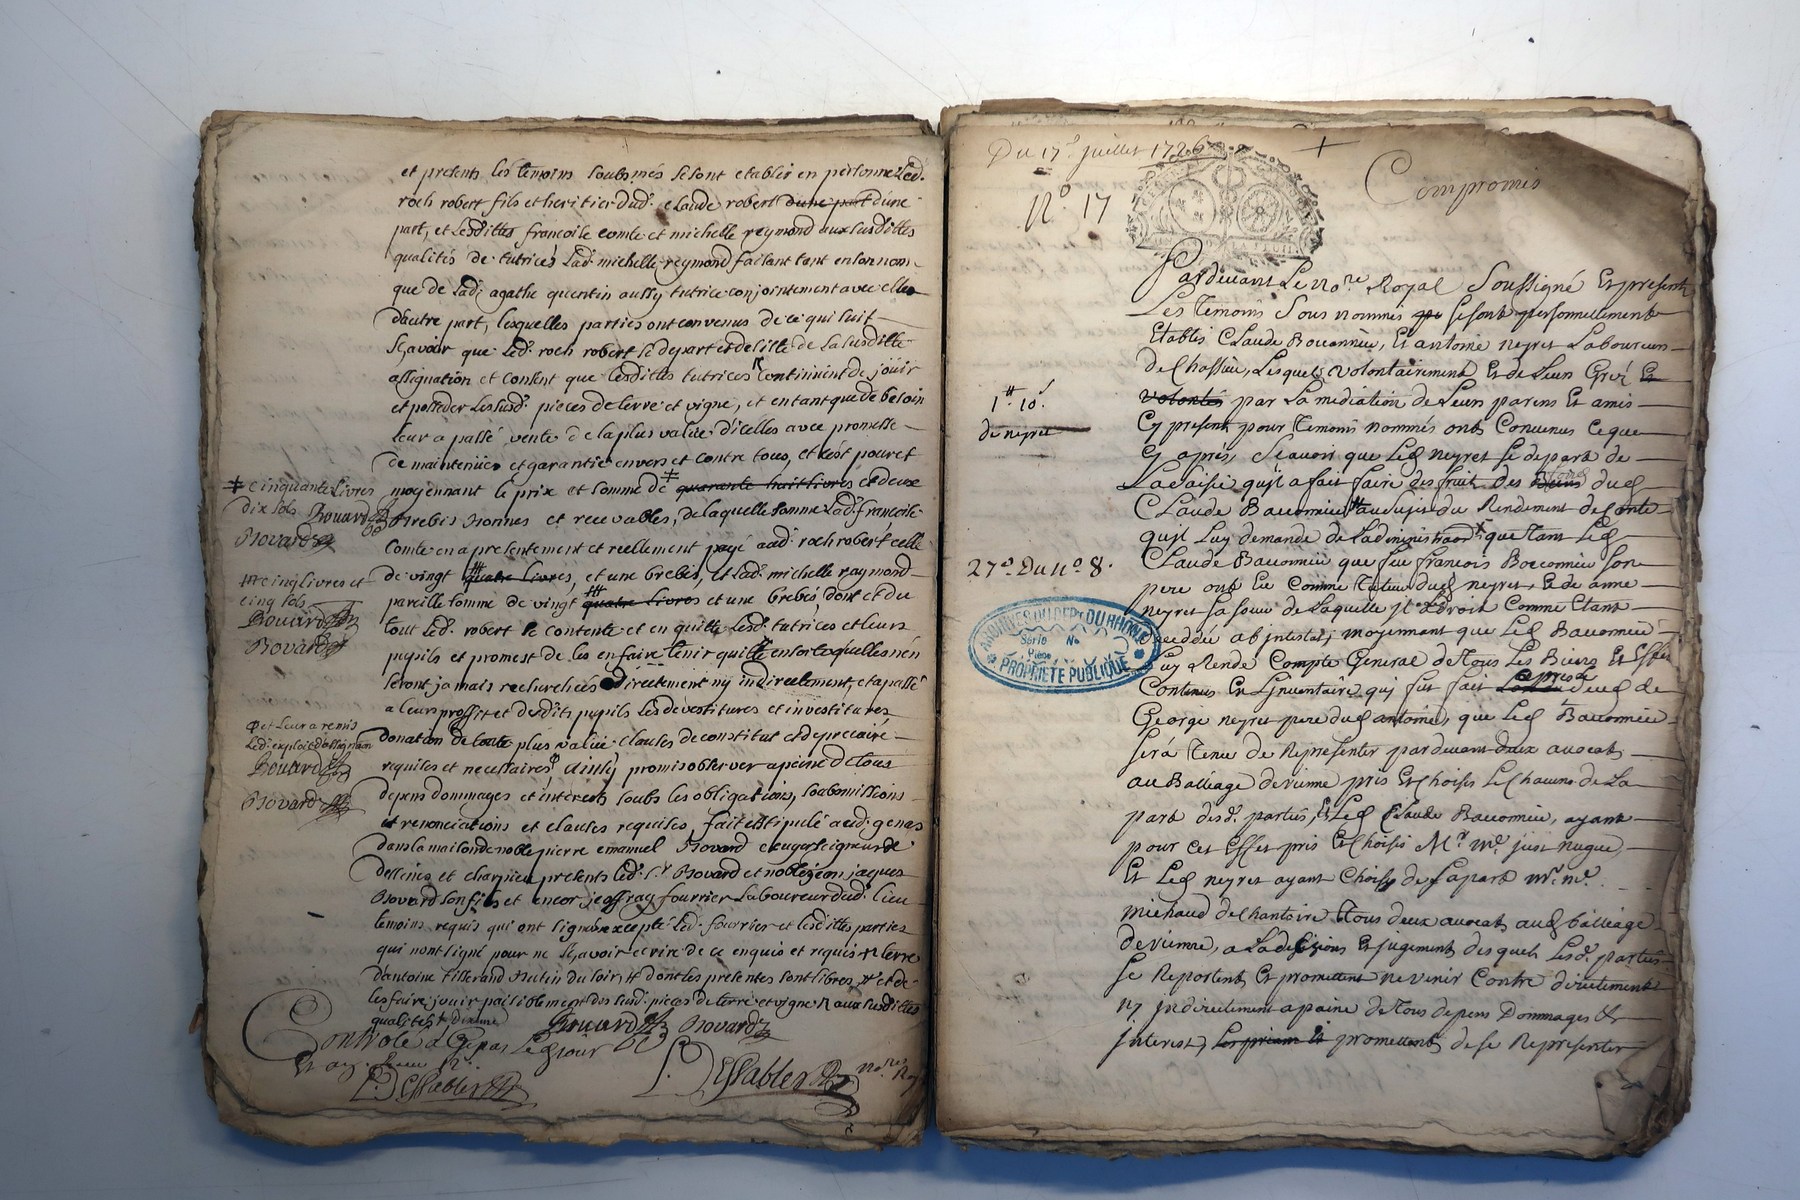 et presents les temoins soubsnés se sont etablis en personne Led.
roch robert fils et heritier dud. claude robert dune part dune
part, et Lesdittes francoise comte et michelle reymond aux susdittes
qualités de tutrices Lad. michelle reymond faisant tant en son nom
que de Lad. agathe quentin aussy tutrice conjointement avec elles
dautre part, lesquelles parties ont convenus de ce qui suit
Sçavoir que Led. roch robert se depart et desiste de La susditte
assignation et consent que lesdittes tutrices continuent de jouir
et posseder Les susd. pieces de terre et vigne, et en tant que de besoin
leur a passé vente de la plus value dicelles avec promesse
de maintenües et garantie envers et contre tous, et c'est pour et
moyennant le prix et somme de quarante huit livres et deux
brebis bonnes et recevables, de laquelle somme Lad. francoise
Comte en a presentement et reellement payé aud. roch robert celle
de vingt quatre livres, et une brebis, et Lad. michelle raymond
pareille somme de vingt quatre livres et une brebis dont et du
tout Led. robert se contente et en quitte Lesd. tutrices et leurs
pupils et promest de les en faire tenir quitte en sorte qu'elles n'en
seront jamais recherchées directement ny indirectement, et a passé
a leurs proffit et desdits pupils Les devestitures et investitures
donation de toute plus value clauses de constitut et de preciaire
requises et necessaires, ainsy promis observer a peine de tous
depens dommages et interests soubs les obligations, soubmissions
et renonciations et clauses requises, fait et stipulé aud. genas
dans la maison de noble pierre emanuel Bovard ecuyer seigneur de
dessines et charpieu presents led. sr Bovard et noble jean jaques
Bovard son fils et encor jeoffray fourrier Laboureur dud. lieu
temoins requis qui ont signé excepté Led. fourrier et lesdittes parties
qui n'ont signé pour ne sçavoir ecrire de ce enquis et requis
dont les presentes sont libres et de
les faire jouir paisiblement des susd. pieces de terre et vigne aux susdittes
qualités
cinquante Livres
dix sols Bouard
Bovard
cinq livres et
cinq sols
Bouard
Bovard
et leur a remis
Led. exploit d'assignation
Bouard
Bovard
Bouard Bovard
Controlé a
P. Essabler
P. Essabler
Du 17e juillet 1726
N° 17
Compromis
Pardevant Le nore Royal Soussigné Et present
Les temoins Sous nommés se sont personnellement
Etablis Claude Bouonnieu, Et antoine neyret Laboureurs
de Chassieu, Lesquels volontairement Et de Leur Gré Et
volontés par La mediation de Leurs parens Et amis
Cy present pour Temoins nommés ont Convenus Ceque
Cy aprés, Scavoir que Led neyret se depart de
La saisie quil a fait faire des fruit des Biens dud
Claude Bauonnieu au sujet du Rendement de Conte
quil Luy demande de Ladministraon que tant Led
Claude Bauonnieu que feu francois Boconnieu son
pere ont Eu Comme Tuteur dud neyret, Et de anne
neyret sa soeur de Laquelle jl a droit Comme Etant
decedée abjntestat; moyennant que Led Bauonnieu
Luy Rende Compte General de Tous Les Biens Et Effets
Contenus En Ljnuentaire quj fut fait aprés le deced de
George neyret pere dud antoine, que Led Bauonnieu
sera Tenue de Representer pardevant deux avocat
au Balliage de vienne pris Et Choisis Le Chacuns de La
part desd. parties, Et Led Claude Bauonnieu, ayant
pour cet Effet pris Et Choisis Mr. me. just nugue
Et Led neyret ayant Choisy de sa part mr. me.
michaud de Chantoire Tous deux avocat aud balliage
de vienne, a La decisions Et jugement desquels Lesd. parties
se Reportent, Et promettent ne venir Contre directement
ny jndirectement a paine de Tous depens Dommages &
jnterest, promettent de se Representer
1# 10s
de neyret
27e Du n° 8.
ARCHIVES DU DEPT DU RHONE
Série No
Pièce
PROPRIETE PUBLIQUE